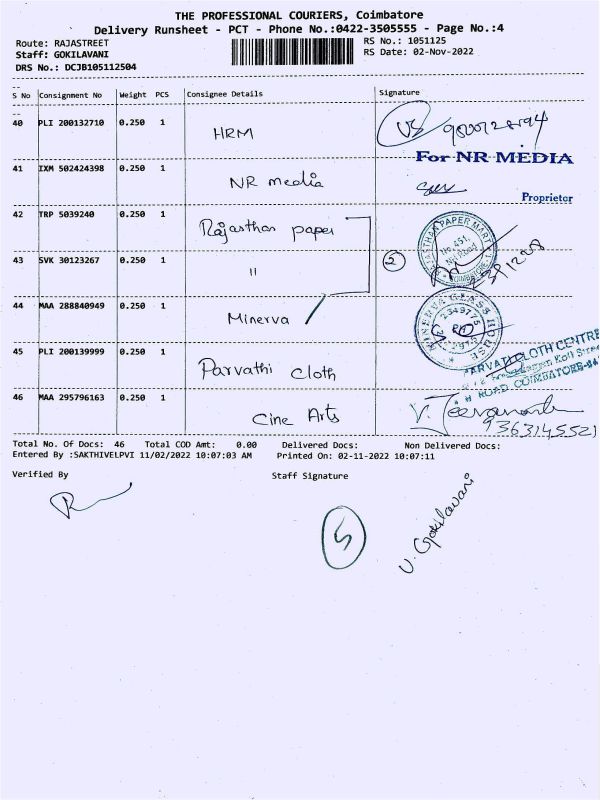 THE PROFESSIONAL COURIERS, Coimbatore
Delivery Runsheet - PCT - Phone No.:0422-3505555 - Page No.:4
Route: RAJASTREET
Staff: GOKILAVANI
DRS No.: DCJB105112504
RS No.: 1051125
RS Date: 02-Nov-2022
S No Consignment No Weight PCS Consignee Details Signature
40 PLI 200132710 0.250 1 HRM
41 IXM 502424398 0.250 1 NR media
For NR MEDIA
Proprietor
42 TRP 5039240 0.250 1 Rajasthan paper
RAJASTHAN PAPER MART
43 SVK 30123267 0.250 1 "
2
44 MAA 288840949 0.250 1 Minerva
MINERVA GLASS HOUSE
45 PLI 200139999 0.250 1 Parvathi cloth
PARVATHI CLOTH CENTRE
ROAD, COIMBATORE
46 MAA 295796163 0.250 1 Cine Arts
9363145521
Total No. Of Docs: 46 Total COD Amt: 0.00 Delivered Docs: Non Delivered Docs:
Entered By :SAKTHIVELPVI 11/02/2022 10:07:03 AM Printed On: 02-11-2022 10:07:11
Verified By Staff Signature
5
V. Gokilavani